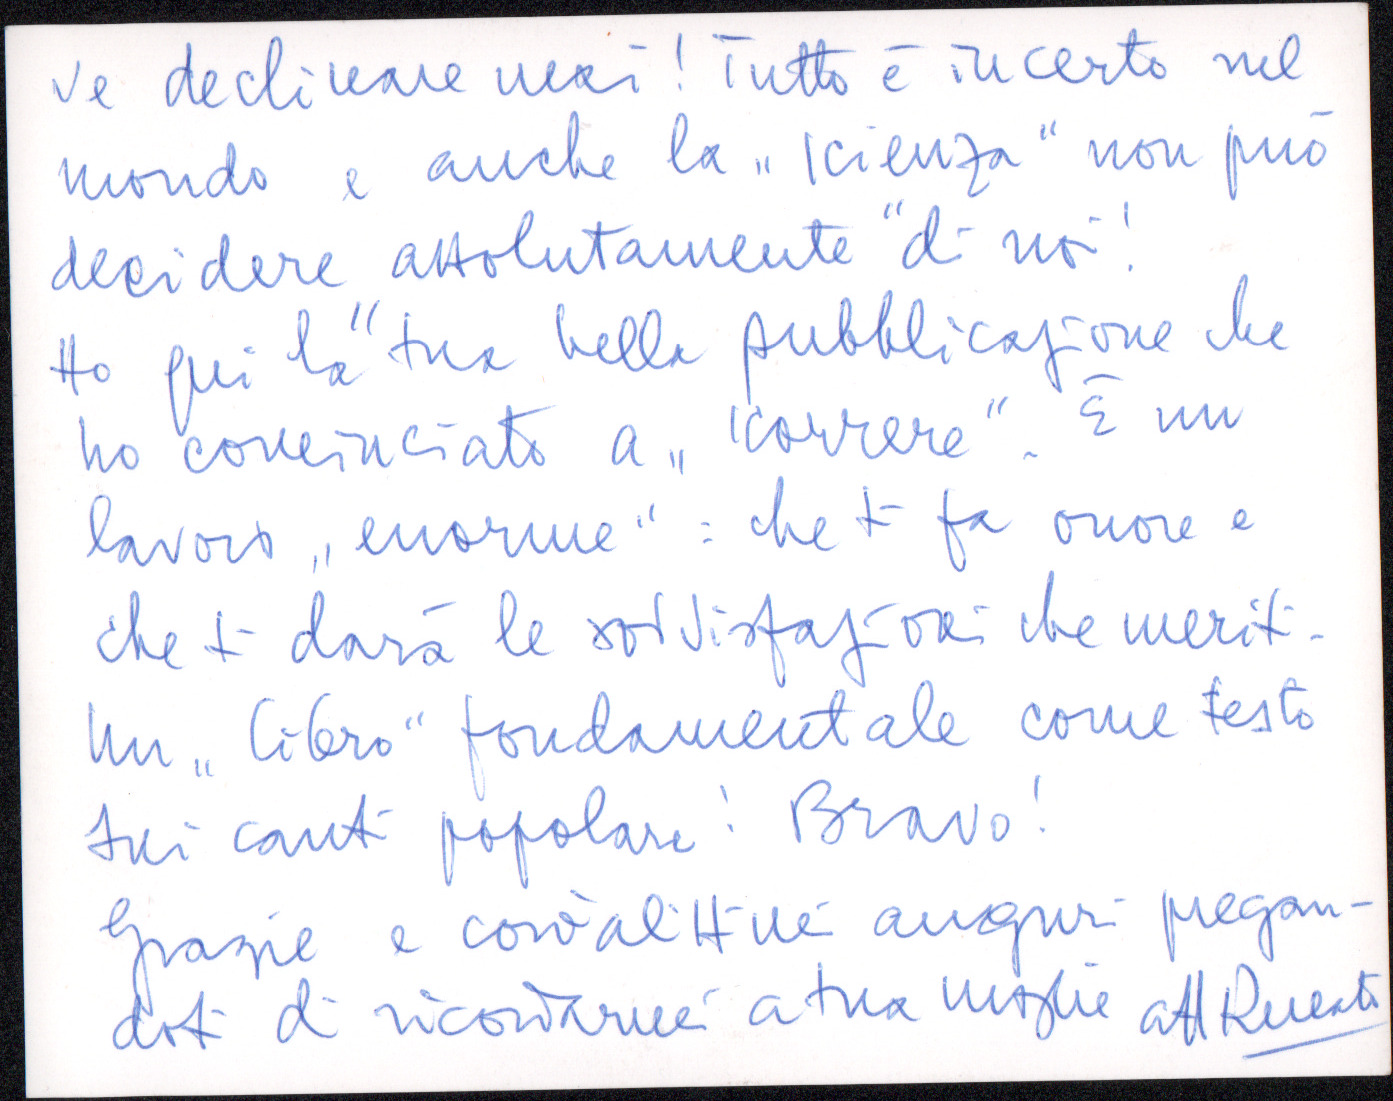 ve declinare mai! Tutto è incerto nel
mondo e anche la „scienza“ non può
decidere assolutamente “di noi!
Ho qui la “ tua bella pubblicazione che
ho cominciato a „scorrere“. È un
lavoro „enorme“: che ti fa onore e
che ti darà le soddisfazioni che meriti.
Un „libro“ fondamentale come testo
sui canti popolari! Bravo!
Grazie e cordialissimi auguri pregan-
doti di ricordarmi a tua moglie aff